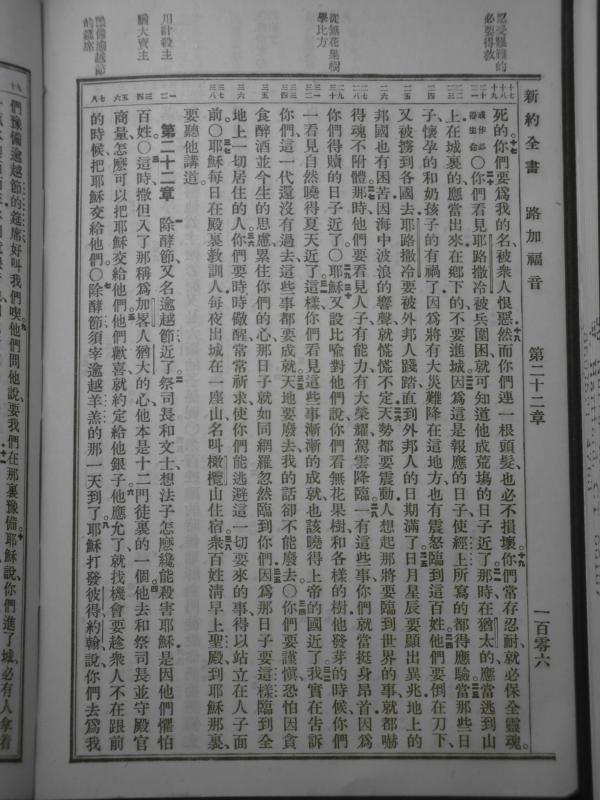 新約全書 路加福音 第二十二章 一百零六
忍受艱難的必要得救
從無花果樹學比方
用計殺主
猶大賣主
豫備逾越節的筵席
死的你們要爲我的名被衆人恨惡然而你們連一根頭髮也必不損壞你們當存忍耐就必保全靈魂
或作必得生命〇你們看見耶路撒冷被兵圍困就可知道他成荒塲的日子近了那時在猶太的應當逃到山
上在城裏的應當出來在鄉下的不要進城因爲這是報應的日子使經上所寫的都得應驗當那些日
子懷孕的和奶孩子的有禍了因爲將有大災難降在這地方也有震怒臨到這百姓他們要倒在刀下
又被擄到各國去耶路撒冷要被外邦人踐踏直到外邦人的日期滿了日月星辰要顯出異兆地上的
邦國也有困苦因海中波浪的響聲就慌慌不定天勢都要震動人想起那將要臨到世界的事就都嚇
得魂不附體那時他們要看見人子有能力有大榮耀駕雲降臨一有這些事你們就當挺身昂首因爲
你們得贖的日子近了〇耶穌又設比喻對他們說你們看無花果樹和各樣的樹他發芽的時候你們
一看見自然曉得夏天近了這樣你們看見這些事漸漸的成就也該曉得上帝的國近了我實在告訴
你們這一代還沒有過去這些事都要成就天地要廢去我的話卻不能廢去〇你們要謹愼恐怕因貪
食醉酒並今生的思慮累住你們的心那日子就如同網羅忽然臨到你們因爲那日子要這樣臨到全
地上一切居住的人你們要時時儆醒常常祈求使你們能逃避這一切要來的事得以站立在人子面
前〇耶穌每日在殿裏教訓人每夜出城在一座山名叫橄欖山住宿衆百姓淸早上聖殿到耶穌那裏
要聽他講道
第二十二章 除酵節又名逾越節近了祭司長和文士想法子怎麽纔能殺害耶穌是因他們懼怕
百姓〇這時撒但入了那稱爲加畧人猶大的心他本是十二門徒裏的一個他去和祭司長並守殿官
商量怎麽可以把耶穌交給他們他們歡喜就約定給他銀子他應允了就找機會要趁衆人不在跟前
的時候把耶穌交給他們〇除酵節須宰逾越羊羔的那一天到了耶穌打發彼得約翰說你們去爲我
們豫備逾越節的筵席好叫我們喫他們問他說要我們在那裏豫備耶穌說你們進了城必有人拿着